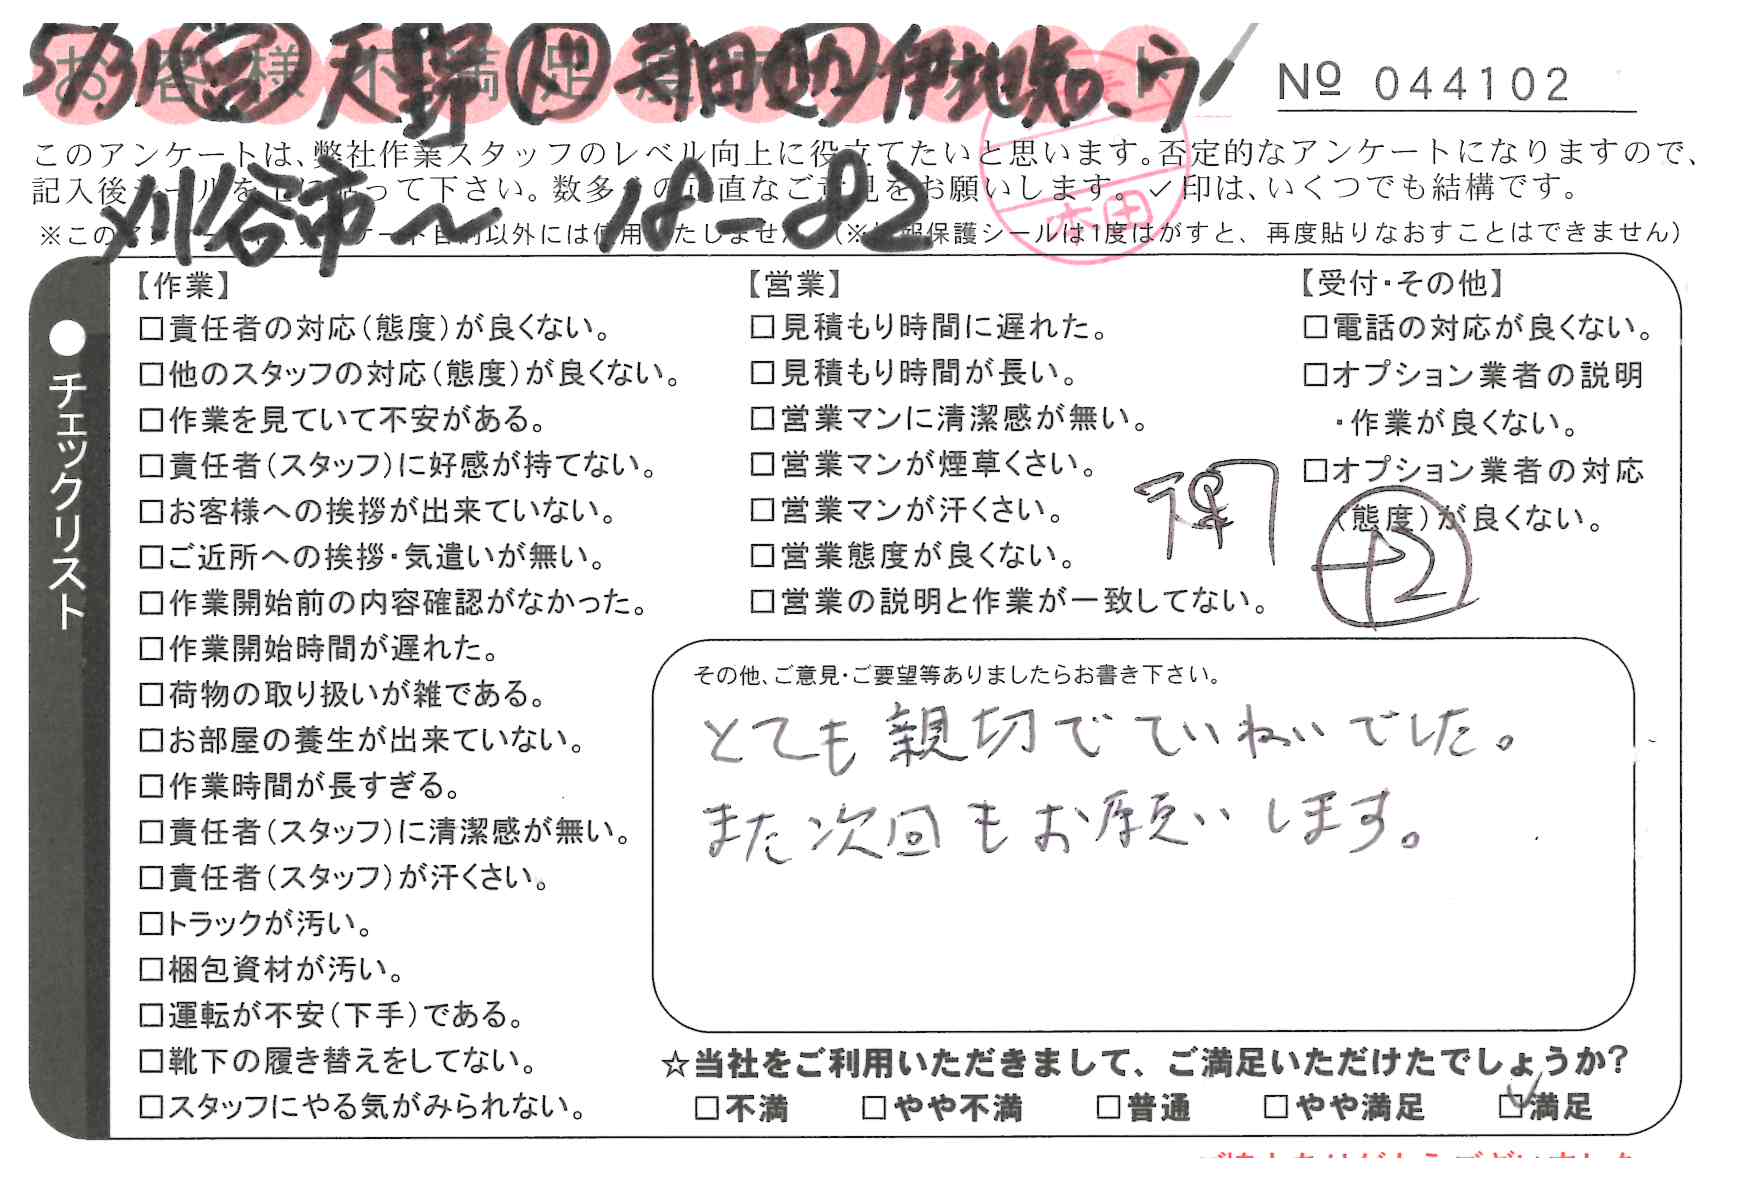 お客様不満足度アンケート
5/31 営 天野 ド 寺田 助 伊地知、ウ
№ 044102
このアンケートは、弊社作業スタッフのレベル向上に役立てたいと思います。否定的なアンケートになりますので、
記入後シールを上に貼って下さい。数多くの正直なご意見をお願いします。✓印は、いくつでも結構です。
刈谷市〜 18-82
※このアンケートは、アンケート目的以外には使用いたしません。(※情報保護シールは1度はがすと、再度貼りなおすことはできません)
本田
●チェックリスト
【作業】
□責任者の対応(態度)が良くない。
□他のスタッフの対応(態度)が良くない。
□作業を見ていて不安がある。
□責任者(スタッフ)に好感が持てない。
□お客様への挨拶が出来ていない。
□ご近所への挨拶・気遣いが無い。
□作業開始前の内容確認がなかった。
□作業開始時間が遅れた。
□荷物の取り扱いが雑である。
□お部屋の養生が出来ていない。
□作業時間が長すぎる。
□責任者(スタッフ)に清潔感が無い。
□責任者(スタッフ)が汗くさい。
□トラックが汚い。
□梱包資材が汚い。
□運転が不安(下手)である。
□靴下の履き替えをしてない。
□スタッフにやる気がみられない。
【営業】
□見積もり時間に遅れた。
□見積もり時間が長い。
□営業マンに清潔感が無い。
□営業マンが煙草くさい。
□営業マンが汗くさい。
□営業態度が良くない。
□営業の説明と作業が一致してない。
【受付・その他】
□電話の対応が良くない。
□オプション業者の説明
・作業が良くない。
□オプション業者の対応
(態度)が良くない。
+2
その他、ご意見・ご要望等ありましたらお書き下さい。
とても親切でていねいでした。
また次回もお願いします。
☆当社をご利用いただきまして、ご満足いただけたでしょうか?
□不満 □やや不満 □普通 □やや満足 ☑満足